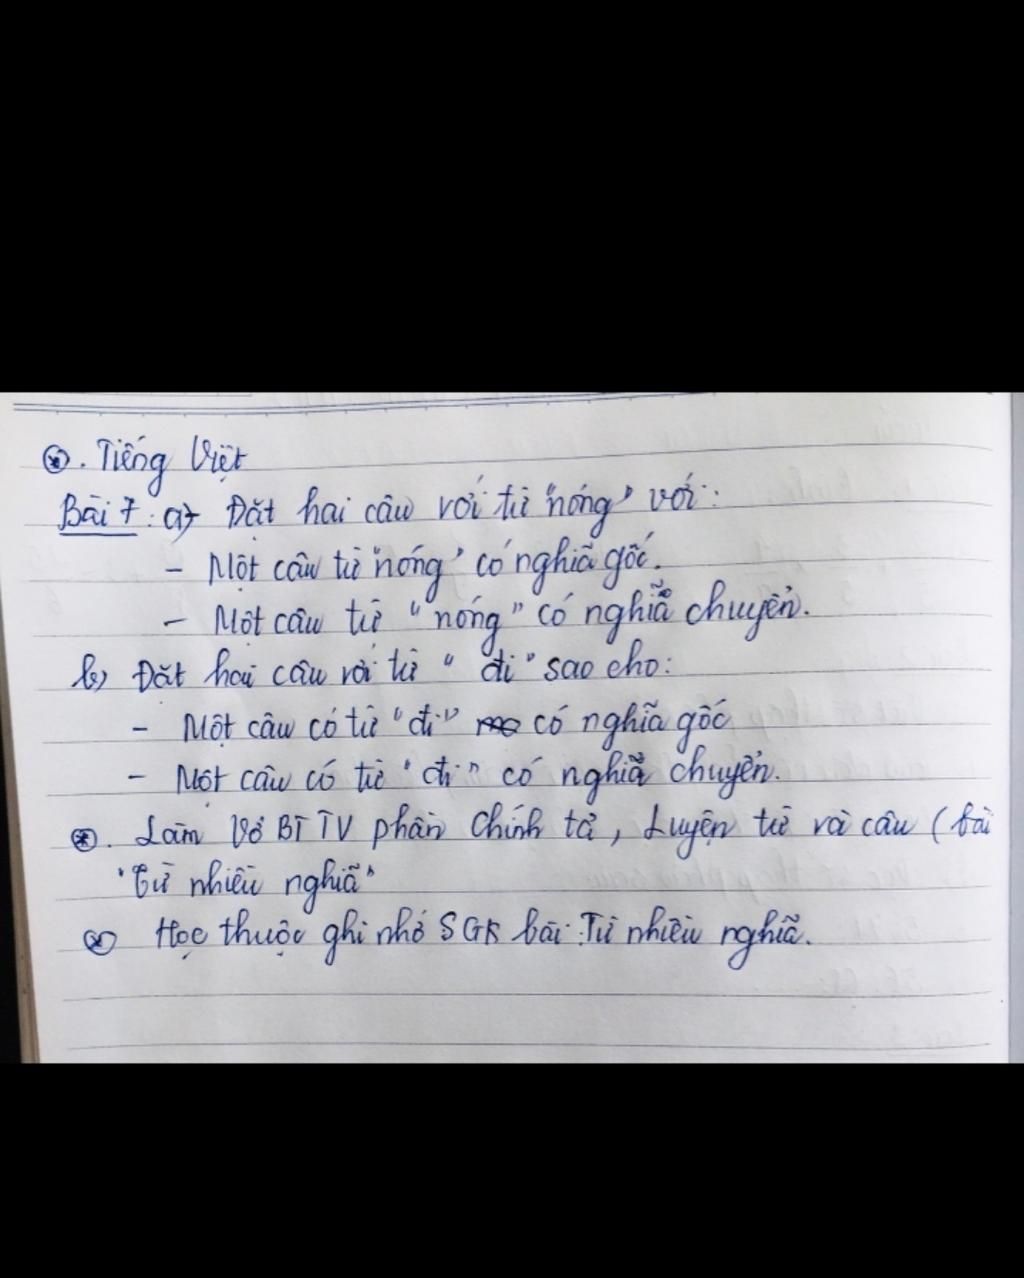 ⊛. Tiếng Việt
Bài 7: a) Đặt hai câu với từ "nóng" với:
- Một câu từ "nóng" có nghĩa gốc.
- Một câu từ "nóng" có nghĩa chuyển.
b) Đặt hai câu với từ "đi" sao cho:
- Một câu có từ "đi" có nghĩa gốc
- Một câu có từ "đi" có nghĩa chuyển.
⊛. Làm Vở BT TV phần Chính tả, Luyện từ và câu (bài
"Từ nhiều nghĩa"
⊛ Học thuộc ghi nhớ SGK bài: Từ nhiều nghĩa.